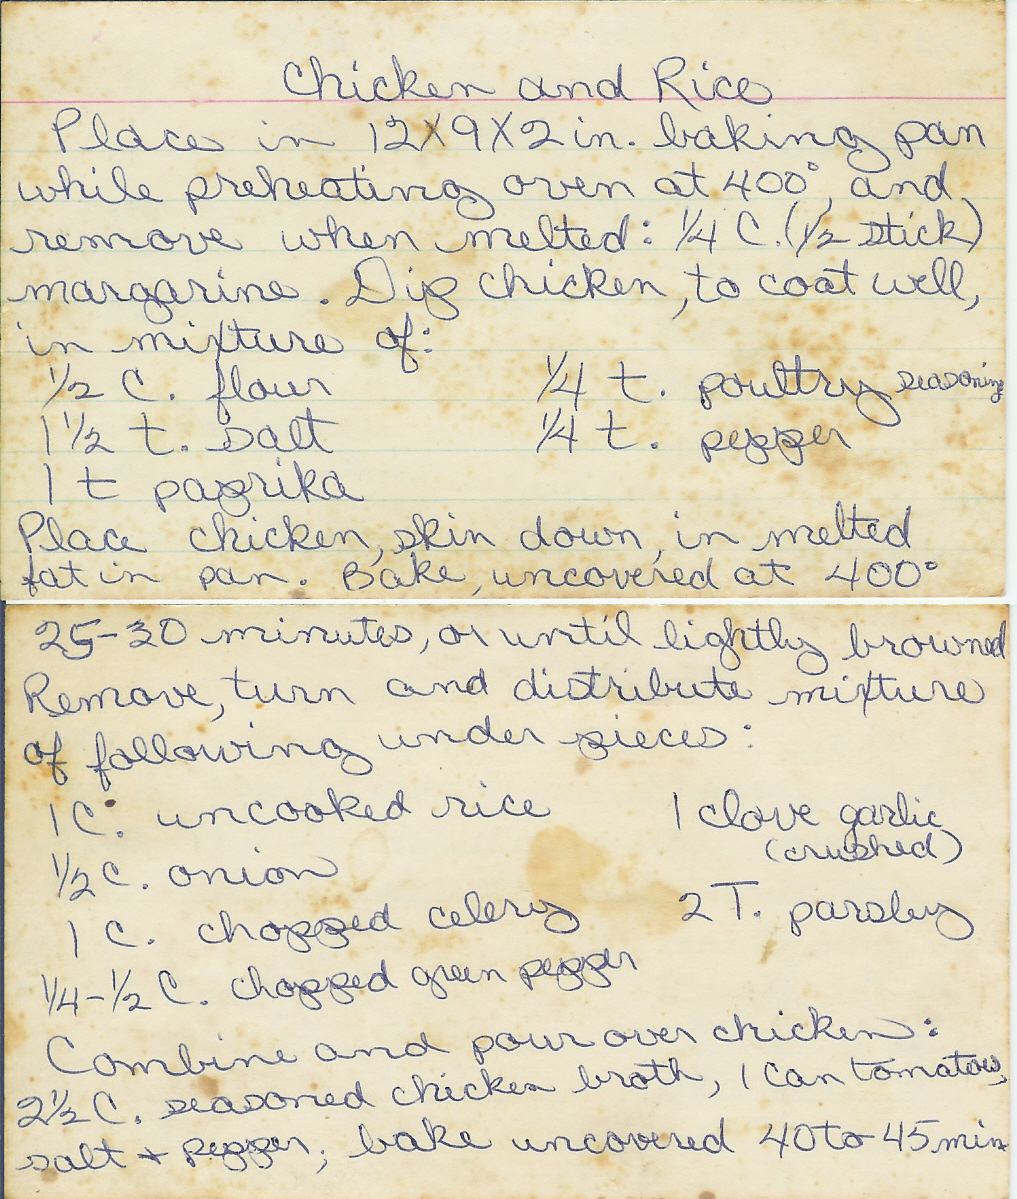 Chicken and Rice
Place in 12X9X2 in. baking pan
while preheating oven at 400°, and
remove when melted: 1/4 C. (1/2 stick)
margarine. Dip chicken, to coat well,
in mixture of:
1/2 C. flour 1/4 t. poultry seasoning
1 1/2 t. salt 1/4 t. pepper
1 t paprika
Place chicken, skin down, in melted
fat in pan. Bake, uncovered at 400°
25-30 minutes, or until lightly browned
Remove, turn and distribute mixture
of following under pieces:
1 C. uncooked rice 1 clove garlic
(crushed)
1/2 C. onion
1 C. chopped celery 2 T. parsley
1/4-1/2 C. chopped green pepper
Combine and pour over chicken:
2 1/2 C. seasoned chicken broth, 1 can tomatoes,
salt + pepper; bake uncovered 40 to 45 min